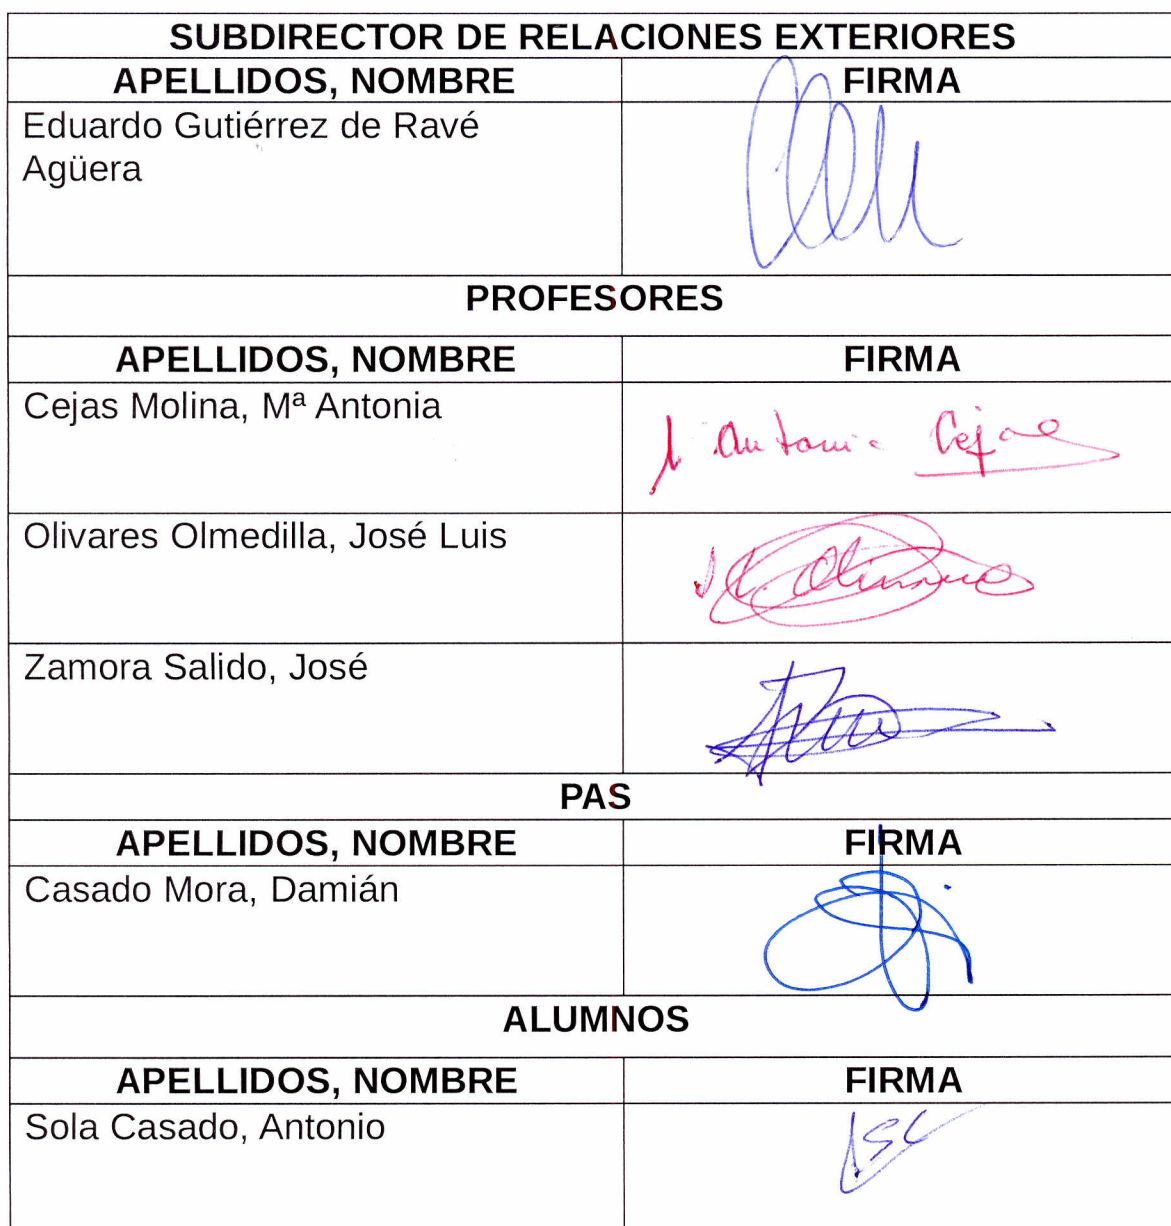 SUBDIRECTOR DE RELACIONES EXTERIORES
APELLIDOS, NOMBRE FIRMA
Eduardo Gutiérrez de Ravé
Agüera
PROFESORES
APELLIDOS, NOMBRE FIRMA
Cejas Molina, Mª Antonia
Antonia Cejas
Olivares Olmedilla, José Luis
Zamora Salido, José
PAS
APELLIDOS, NOMBRE FIRMA
Casado Mora, Damián
ALUMNOS
APELLIDOS, NOMBRE FIRMA
Sola Casado, Antonio